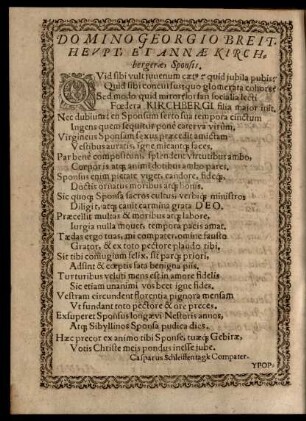 DOMINO GEORGIO BREIT-
HEVPT: ET ANNÆ KIRCH-
bergeræ Sponsis.
QVid sibi vult juvenum cætus quid jubila pubis?
Quid sibi concursus quo glomerata cohors?
Sed modo quid miror? sursan socialia lecti
Fœdera KIRCHBERGI filia maior init.
Nec dubium: en Sponsum serto sua tempora cinctum
Ingens quem sequitur pone caterva virûm,
Virgineus Sponsam sexus præcedit amictum
Vestibus auratis, igne micantq; faces,
Par bene compositum: splendent virtutibus ambo,
Corpori atq; animi dotibus ambo pares.
Sponsus enim pietate viget, candore, fideq;
Doctis ornatus moribus arq;
Sic quoq; Sponsa sacros cultus verbiq; ministros
Diligit, atq; canit carmina grata DEO.
Præcellit multas & moribus atq; labore,
Iurgia nulla mouet, tempora pacis amat.
Tædas ergo tuas, mi compater, omine fausto
Grator, & ex toto pectore plaudo tibi,
Sit tibi coniugium felix, sit parq; priori,
Adsint & cœptis fata benigna piis.
Turturibus veluti mens est in amore fidelis
Sic etiam unanimi vos beet igne fides.
Vestram circundent florentia pignora mensam
Vt fundant toto pectore & ore preces.
Exsuperet Sponsus longævi Nestoris annos,
Atq; Sibyllinos Sponsa pudica dies.
Hæc precor ex animo tibi Sponse, tuæq; Gebiræ,
Votis Christe meis pondus inesse jube.
Casparus Schleiffentagk Compater.
YPOP-